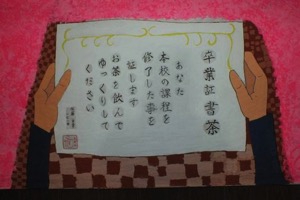 卒業証書茶
あなた
本校の課程を
修了した事を
証します
お茶を飲んで
ゆっくりして
ください